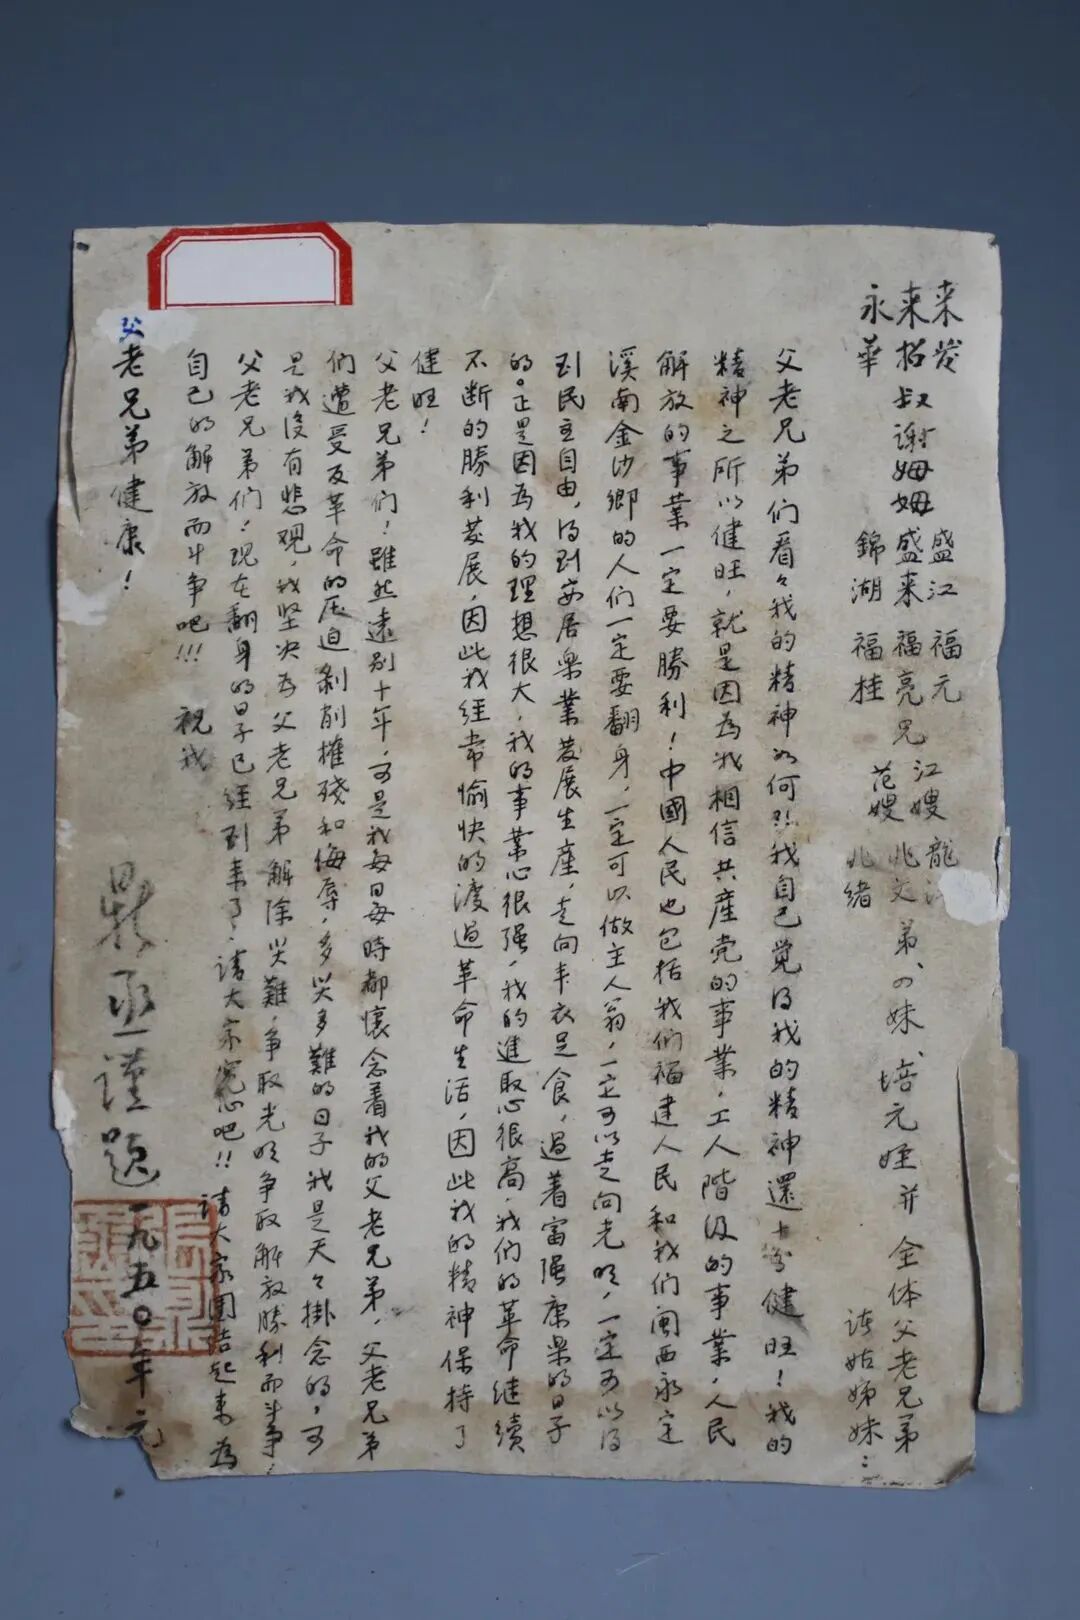 来发
来招叔谢姆姆盛江福元
永華
盛来福亮兄江嫂龍
錦湖福桂范嫂兆文弟、の妹、培元姪并全体父老兄弟
兆緒
諸姑姊妹：
父老兄弟们看々我的精神如何？！我自己觉得我的精神還十分健旺！我的
精神之所以健旺，就是因為我相信共産党的事業，工人階级的事業，人民
解放的事業一定要勝利！中國人民也包括我们福建人民和我们閩西永定
溪南金沙鄉的人们一定要翻身，一定可以做主人翁，一定可以走向光明，一定可以得
到民主自由，得到安居樂業發展生産，走向丰衣足食，過着富强康樂的日子
的。正是因為我的理想很大，我的事業心很强，我的進取心很高，我们的革命继續
不断的勝利發展，因此我经常愉快的渡過革命生活，因此我的精神保持了
健旺！
父老兄弟们！雖然遠别十年，可是我每日每時都懷念着我的父老兄弟，父老兄弟
们遭受反革命的压迫剥削摧殘和侮辱，多災多難的日子我是天々掛念的，可
是我没有悲观，我坚决为父老兄弟解除災難，争取光明争取解放勝利而斗争！
父老兄弟们！现在翻身的日子已经到来了，請大家宽心吧！！請大家團结起来為
自己的解放而斗争吧！！！祝我
父老兄弟健康！
鼎丞謹題一九五〇年元